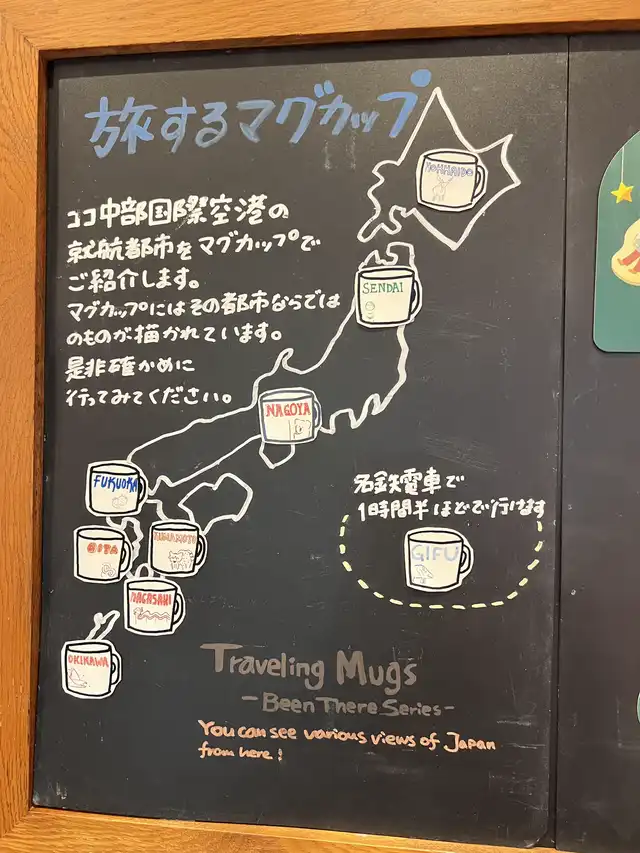 旅するマグカップ
ココ中部国際空港の
就航都市をマグカップで
ご紹介します。
マグカップにはその都市ならでは
のものが描かれています。
是非確かめに
行ってみてください。
HOKKAIDO
SENDAI
NAGOYA
FUKUOKA
OITA
KUMAMOTO
NAGASAKI
OKIKAWA
名鉄電車で
1時間半ほどで行けます
GIFU
Traveling Mugs
-Been There Series-
You can see various views of Japan
from here!